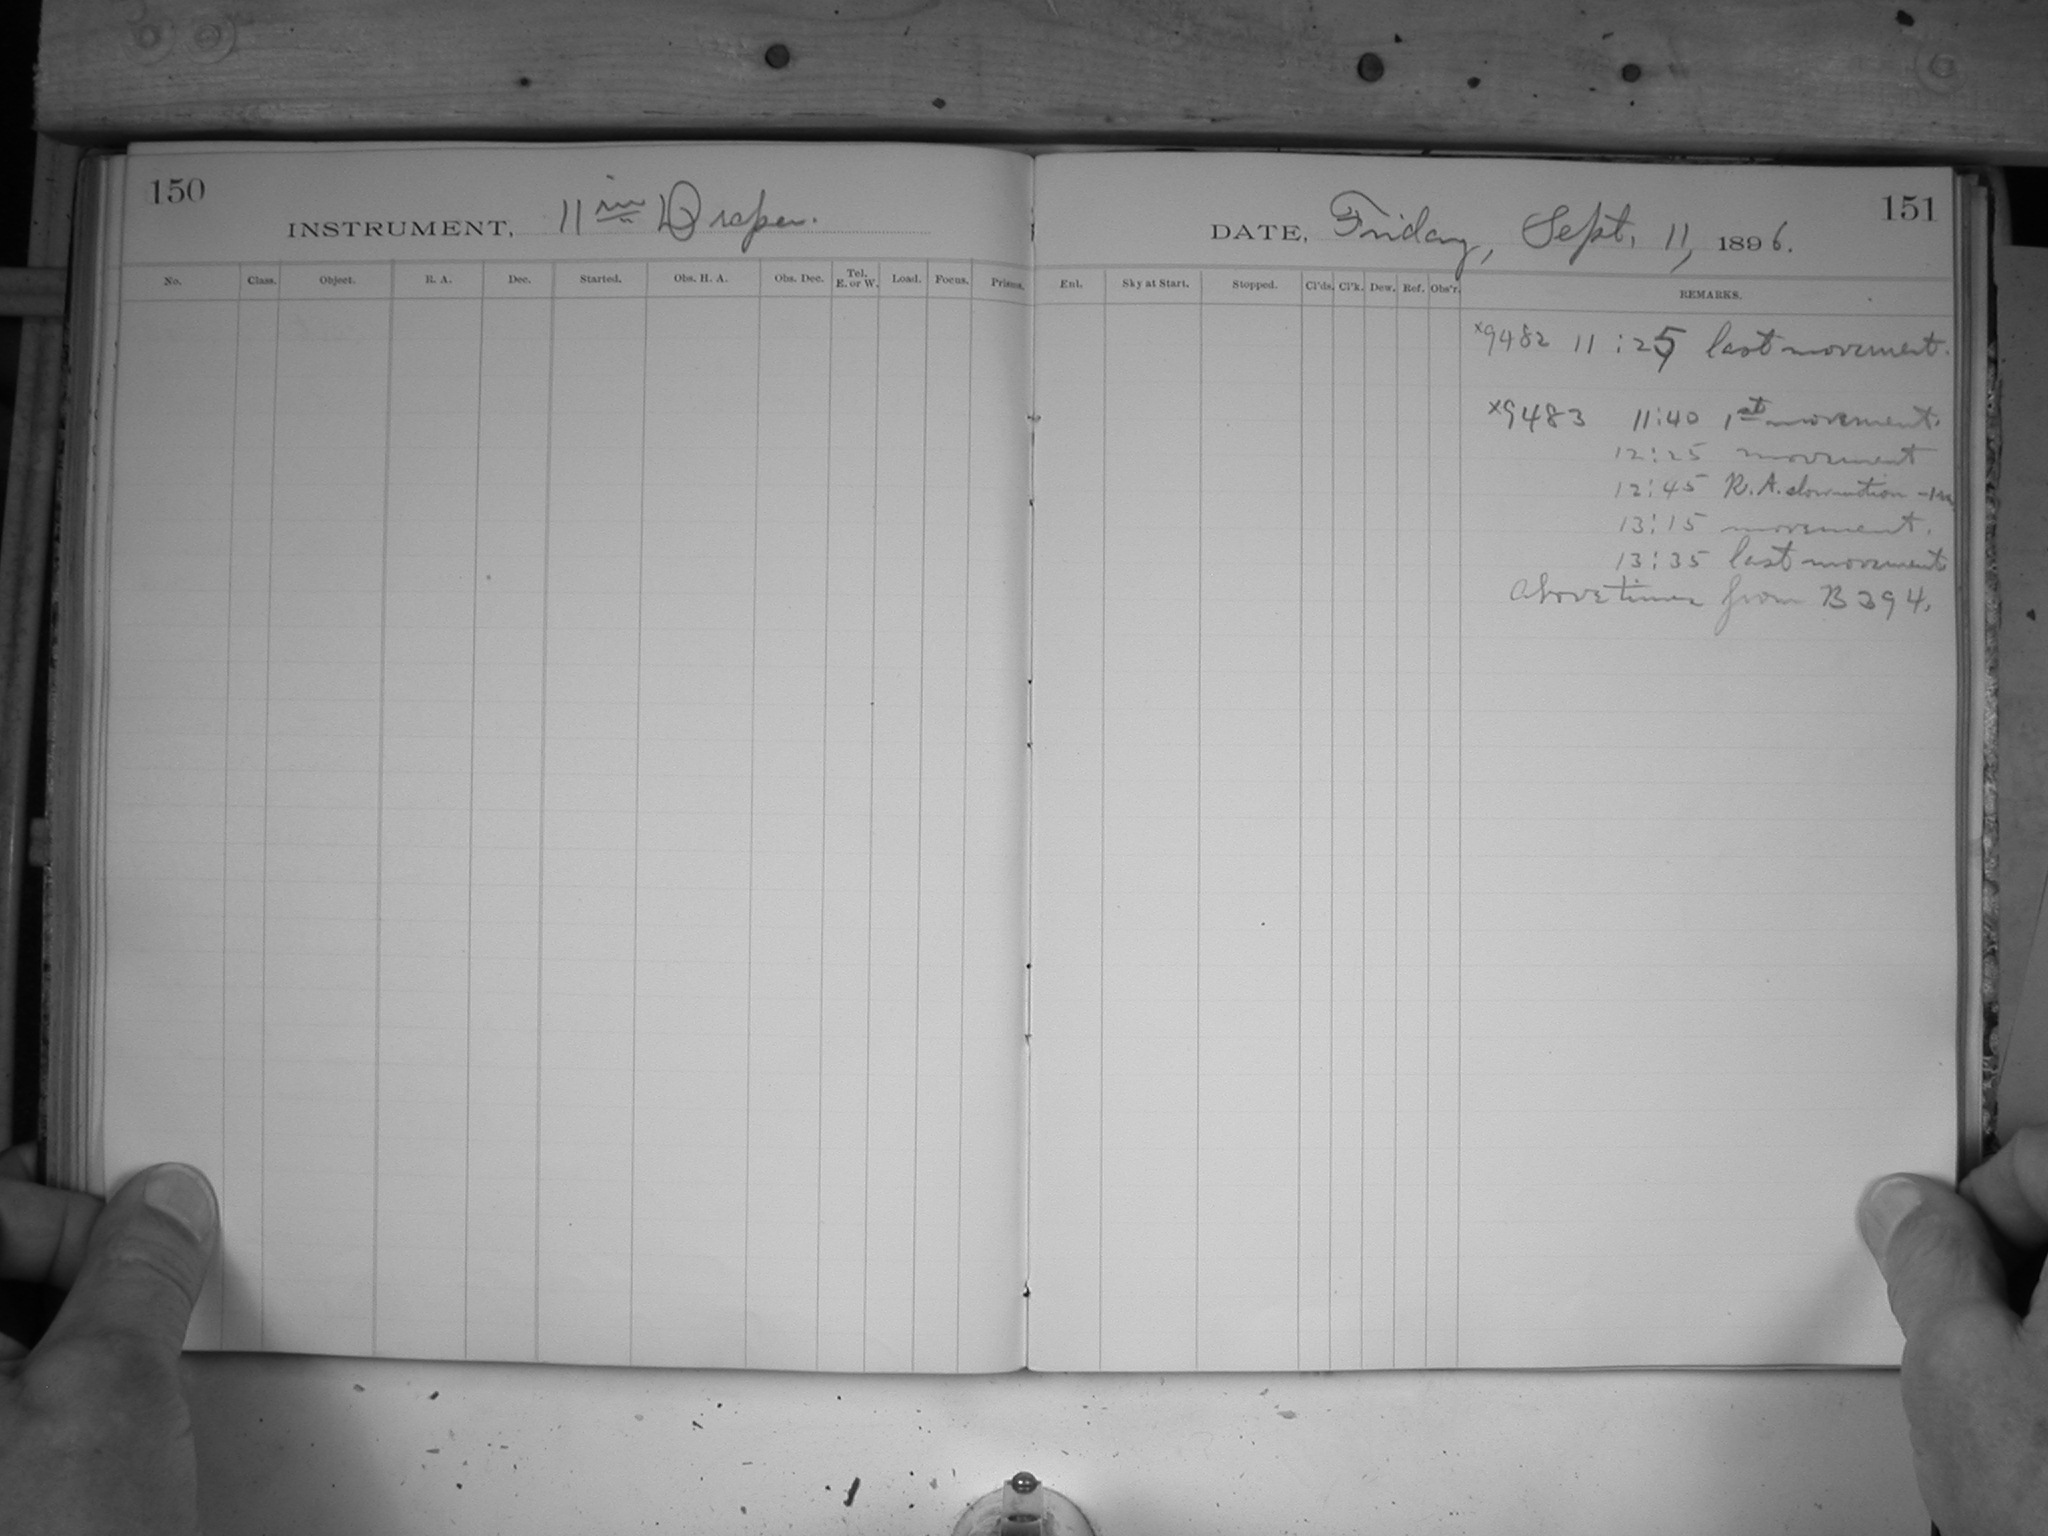 150
INSTRUMENT, 11 in Draper.
No. Class. Object. R. A. Dec. Started. Obs. H. A. Obs. Dec. Tel. E. or W. Load. Focus. Prisms.
151
DATE, Friday, Sept. 11, 1896.
Ent. Sky at Start. Stopped. Cl'ds. Cl'k. Dew. Ref. Obs'r. REMARKS.
x9482 11:25 last movement.
x9483 11:40 1st movement.
12:25 movement
12:45 R.A. slow motion -1m
13:15 movement.
13:35 last movement
Above times from B394.